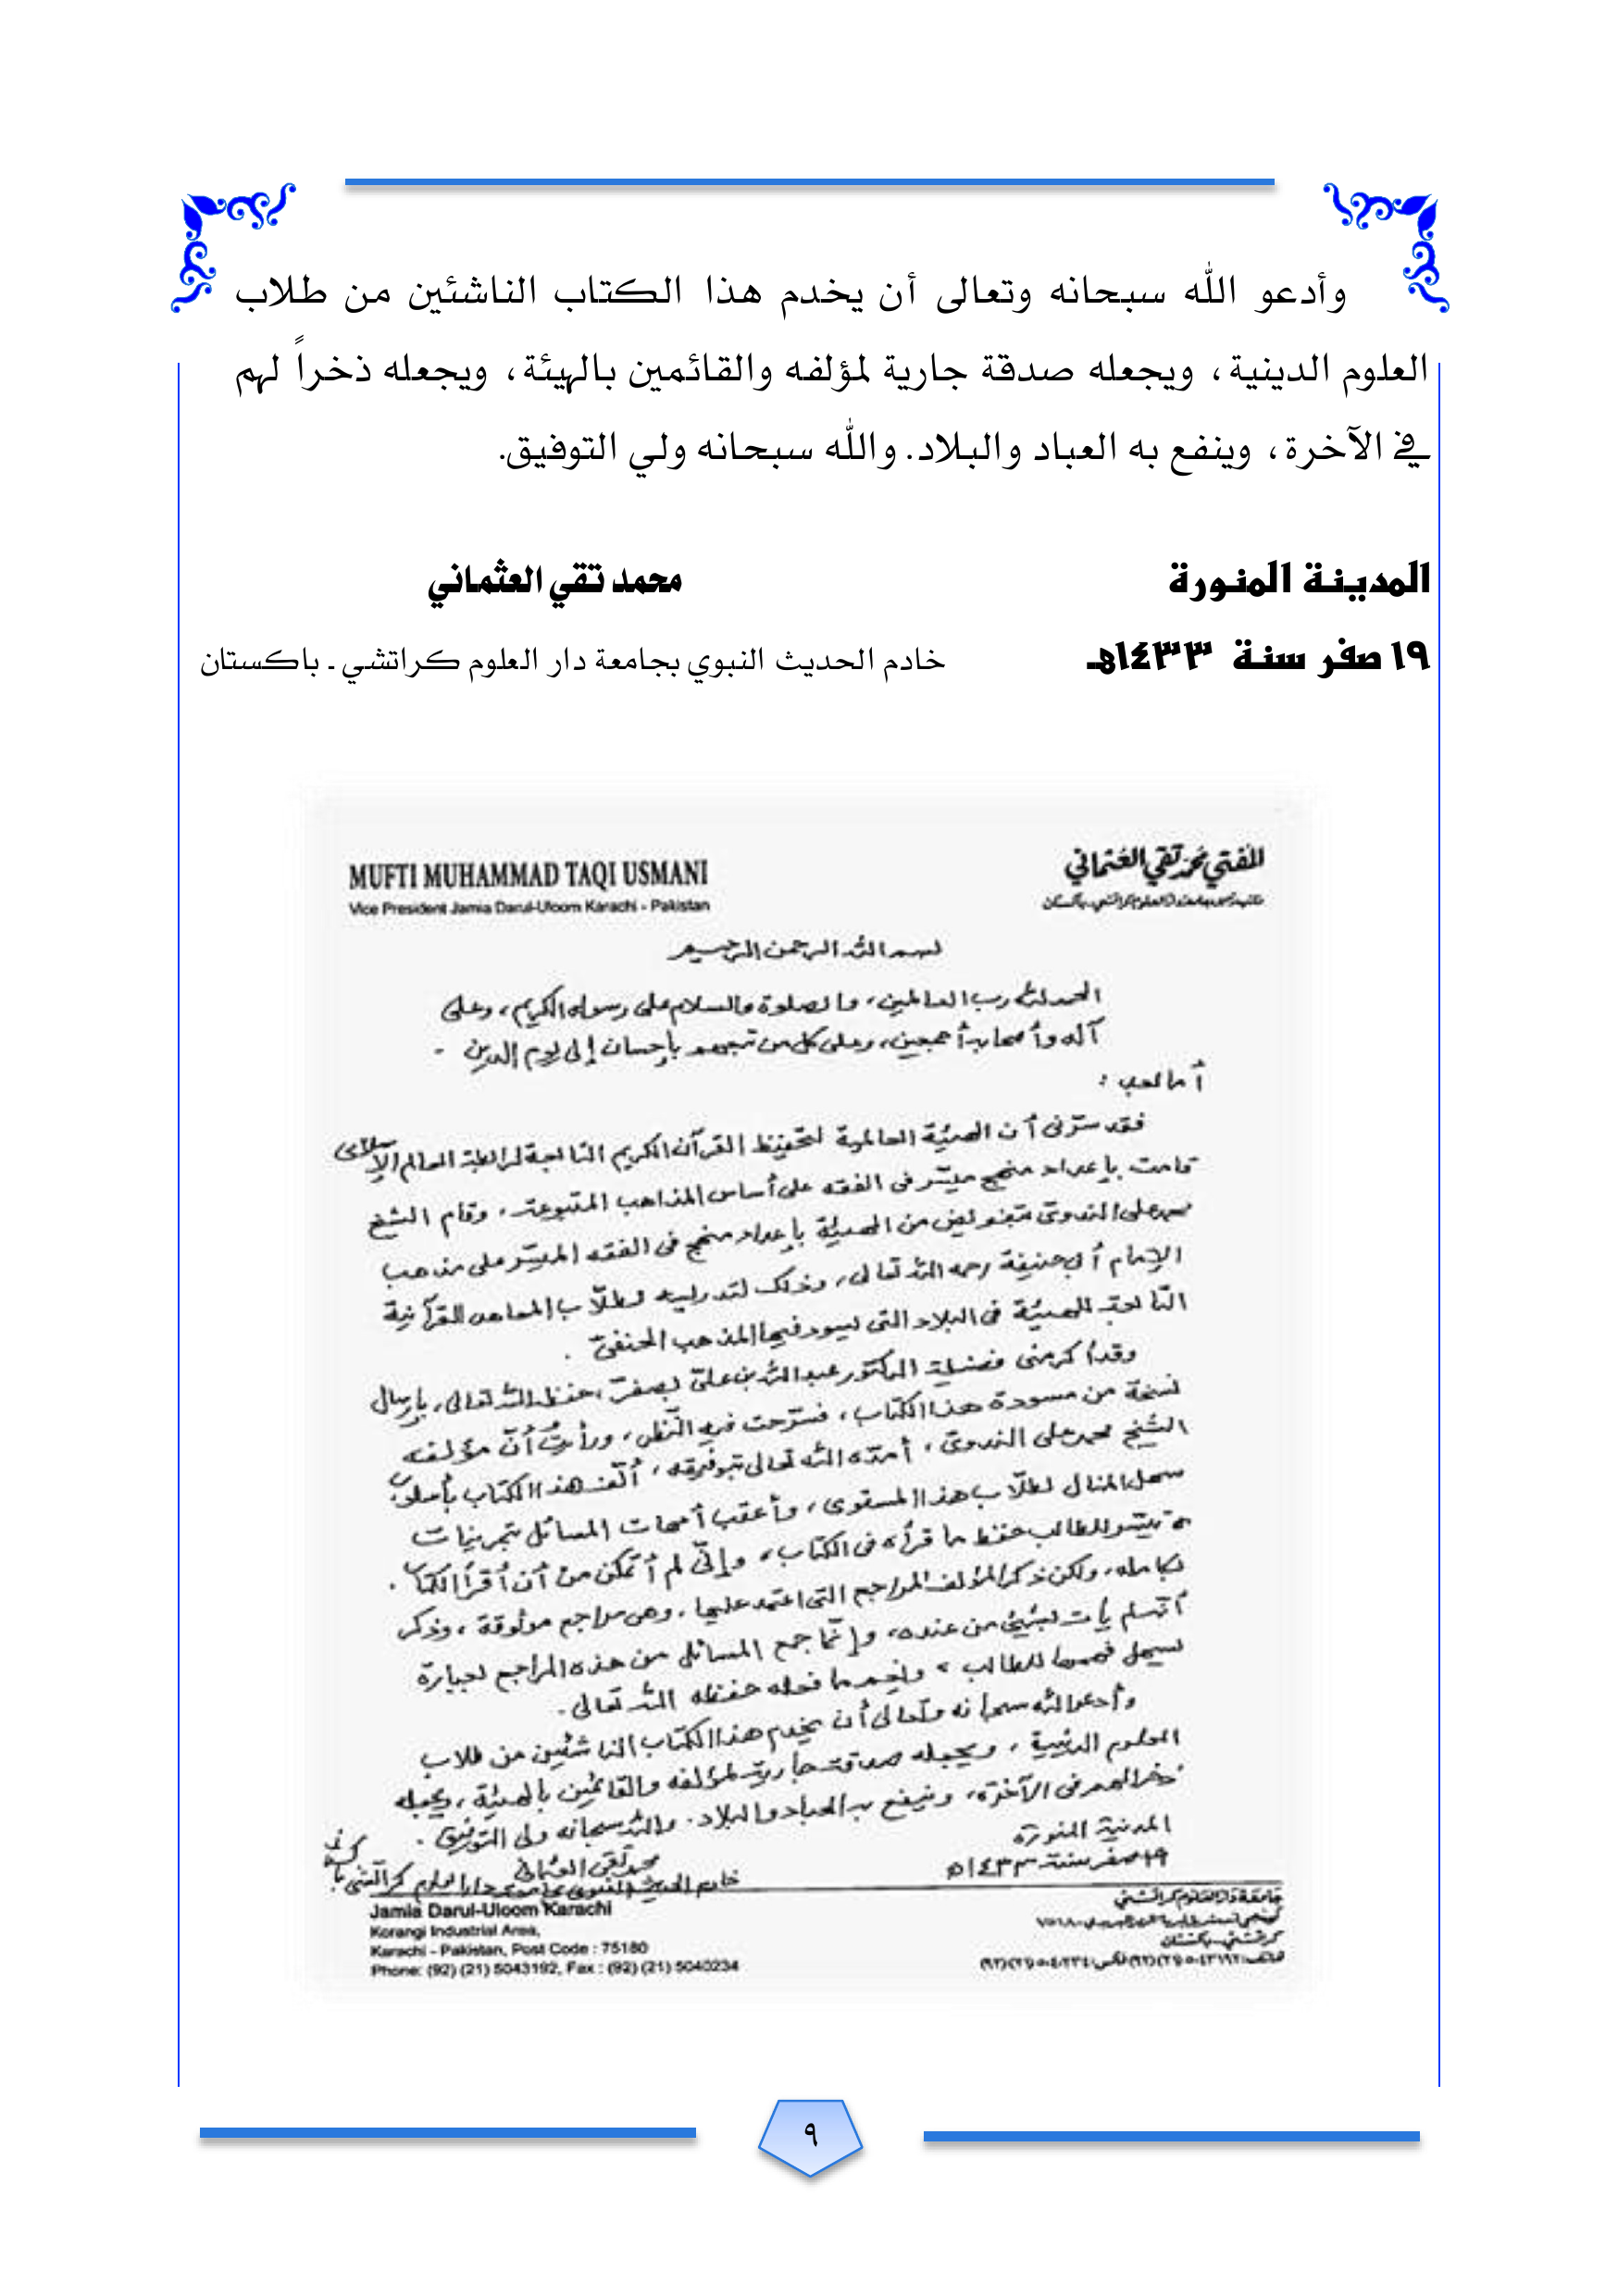 وأدعو الله سبحانه وتعالى أن يخدم هذا الكتاب الناشئين من طلاب
العلوم الدينية، ويجعله صدقة جارية لمؤلفه والقائمين بالهيئة، ويجعله ذخراً لهم
في الآخرة، وينفع به العباد والبلاد. والله سبحانه ولي التوفيق.
المدينة المنورة محمد تقي العثماني
١٩ صفر سنة ١٤٣٣هـ خادم الحديث النبوي بجامعة دار العلوم كراتشي ـ باكستان
المفتي محمد تقي العثماني MUFTI MUHAMMAD TAQI USMANI
Vice President Jamia Darul-Uloom Karachi - Pakistan
بسم الله الرحمن الرحيم
الحمد لله رب العالمين، والصلوة والسلام على رسوله الكريم، وعلى
آله وأصحابه أجمعين، وعلى كل من تبعهم بإحسان إلى يوم الدين -
أما بعد :
فقد سرّنى أن الهيئة العالمية لتحفيظ القرآن الكريم التابعة لرابطة العالم الإسلامى
قامت بإعداد منهج ميسّر فى الفقه على أساس المذاهب المتبوعة، وقام الشيخ
محمد على الندوىّ بتفويض من الهيئة بإعداد منهج فى الفقه الميسّر على مذهب
الإمام أبى حنيفة رحمه الله تعالى، وذلك لتدريسه لطلّاب المعاهد القرآنية
التابعة للهيئة فى البلاد التى يسود فيها المذهب الحنفىّ .
وقد أكرمنى فضيلة الدكتور عبد الله بن علىّ بصفر، حفظه الله تعالى، بإرسال
نسخة من مسودة هذا الكتاب، فسرّحت فيه النّظر، ورأيت أنّ مؤلفه
الشيخ محمد على الندوىّ، أمدّه الله تعالى بتوفيقه، ألّف هذا الكتاب بأسلوب
سهل المنال لطلّاب هذا المستوى، وأعقب أمهات المسائل بتمرينات
تيسّر للطالب حفظ ما قرأه فى الكتاب، وإنّى لم أتمكن من أن أقرأ الكتاب
بكامله، ولكن ذكر المؤلف المراجع التى اعتمد عليها، وهى مراجع موثوقة، وذكر
أنّه لم يأت بشيئ من عنده، وإنّما جمع المسائل من هذه المراجع بعبارة
يسهل فهمها للطالب، ونعم ما فعله حفظه الله تعالى.
وأدعو الله سبحانه وتعالى أن يخدم هذا الكتاب الناشئين من طلاب
العلوم الدينية، ويجعله صدقة جارية لمؤلفه والقائمين بالهيئة، ويجعله
ذخرا لهم فى الآخرة، وينفع به العباد والبلاد. والله سبحانه ولى التوفيق .
المدينة المنورة محمد تقى العثمانى
١٩ صفر سنة ١٤٣٣ھ خادم الحديث النبوى بجامعة دار العلوم كراتشى
Jamia Darul-Uloom Karachi
Korangi Industrial Area,
Karachi - Pakistan, Post Code : 75180
Phone: (92) (21) 5043192, Fax : (92) (21) 5040234
جامعة دار العلوم كراتشي
كراتشي - باكستان
٩